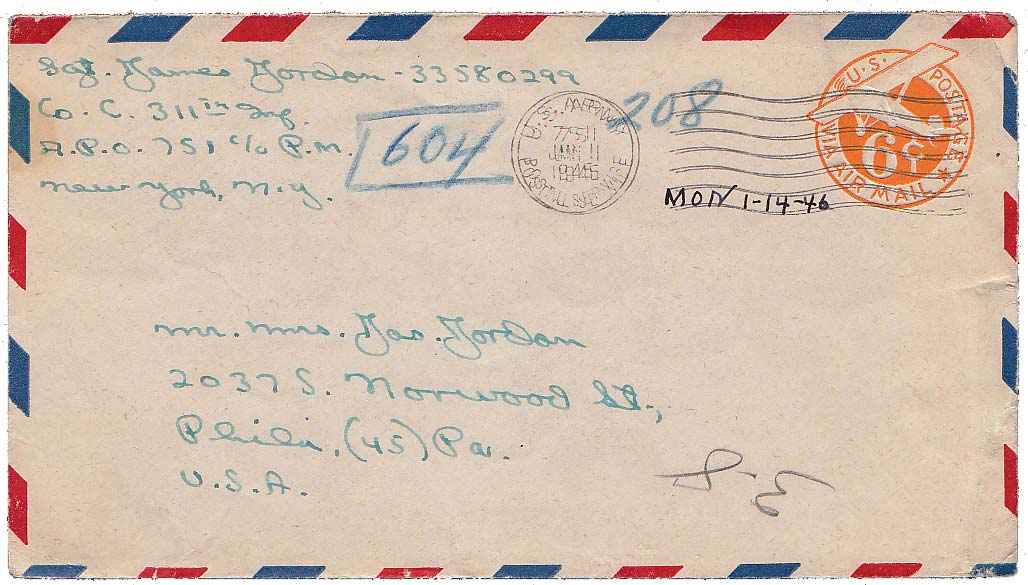 Sgt. James Jordan - 33580299
Co. C. 311th Inf.
A.P.O. 751 c/o P.M.
New York, N.Y.
604
208
U.S. ARMY
JAN 11
POSTAL SERVICE
U.S. POSTAGE
6¢
VIA AIR MAIL
MON 1-14-46
Mr. Mrs. Jas. Jordan
2037 S. Norwood St.,
Phila, (45) Pa.
U.S.A.